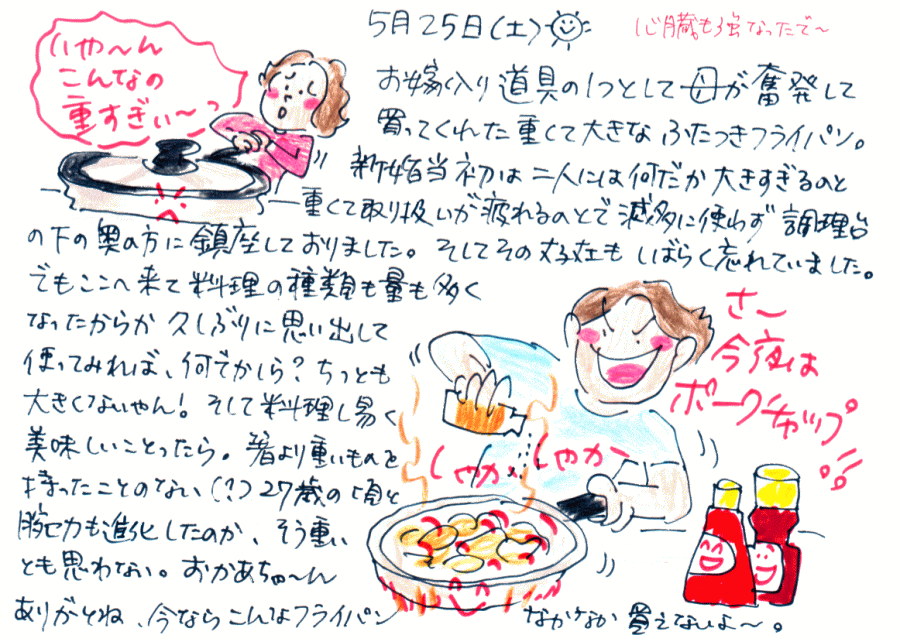 5月25日(土)
心臓も強なったで〜
いや〜ん
こんなの
重すぎぃ〜?
お嫁入り道具の1つとして母が奮発して
買ってくれた重くて大きなふたつきフライパン。
新婚当初は二人には何だか大きすぎるのと
重くて取り扱いが疲れるのとで滅多に使わず調理台
の下の奥の方に鎮座しておりました。そしてその存在もしばらく忘れていました。
でもここへ来て料理の種類も量も多く
なったからか久しぶりに思い出して
使ってみれば、何でかしら?ちっとも
大きくないやん!そして料理し易く
美味しいことったら。箸より重いものを
持ったことのない(?)27歳の頃と
腕力も進化したのか、そう重い
とも思わない。おかあちゅ〜ん
ありがとね、今ならこんなフライパン なかなか買えないよ〜。
さ〜
今夜は
ポークチャップ
しゃか しゃか